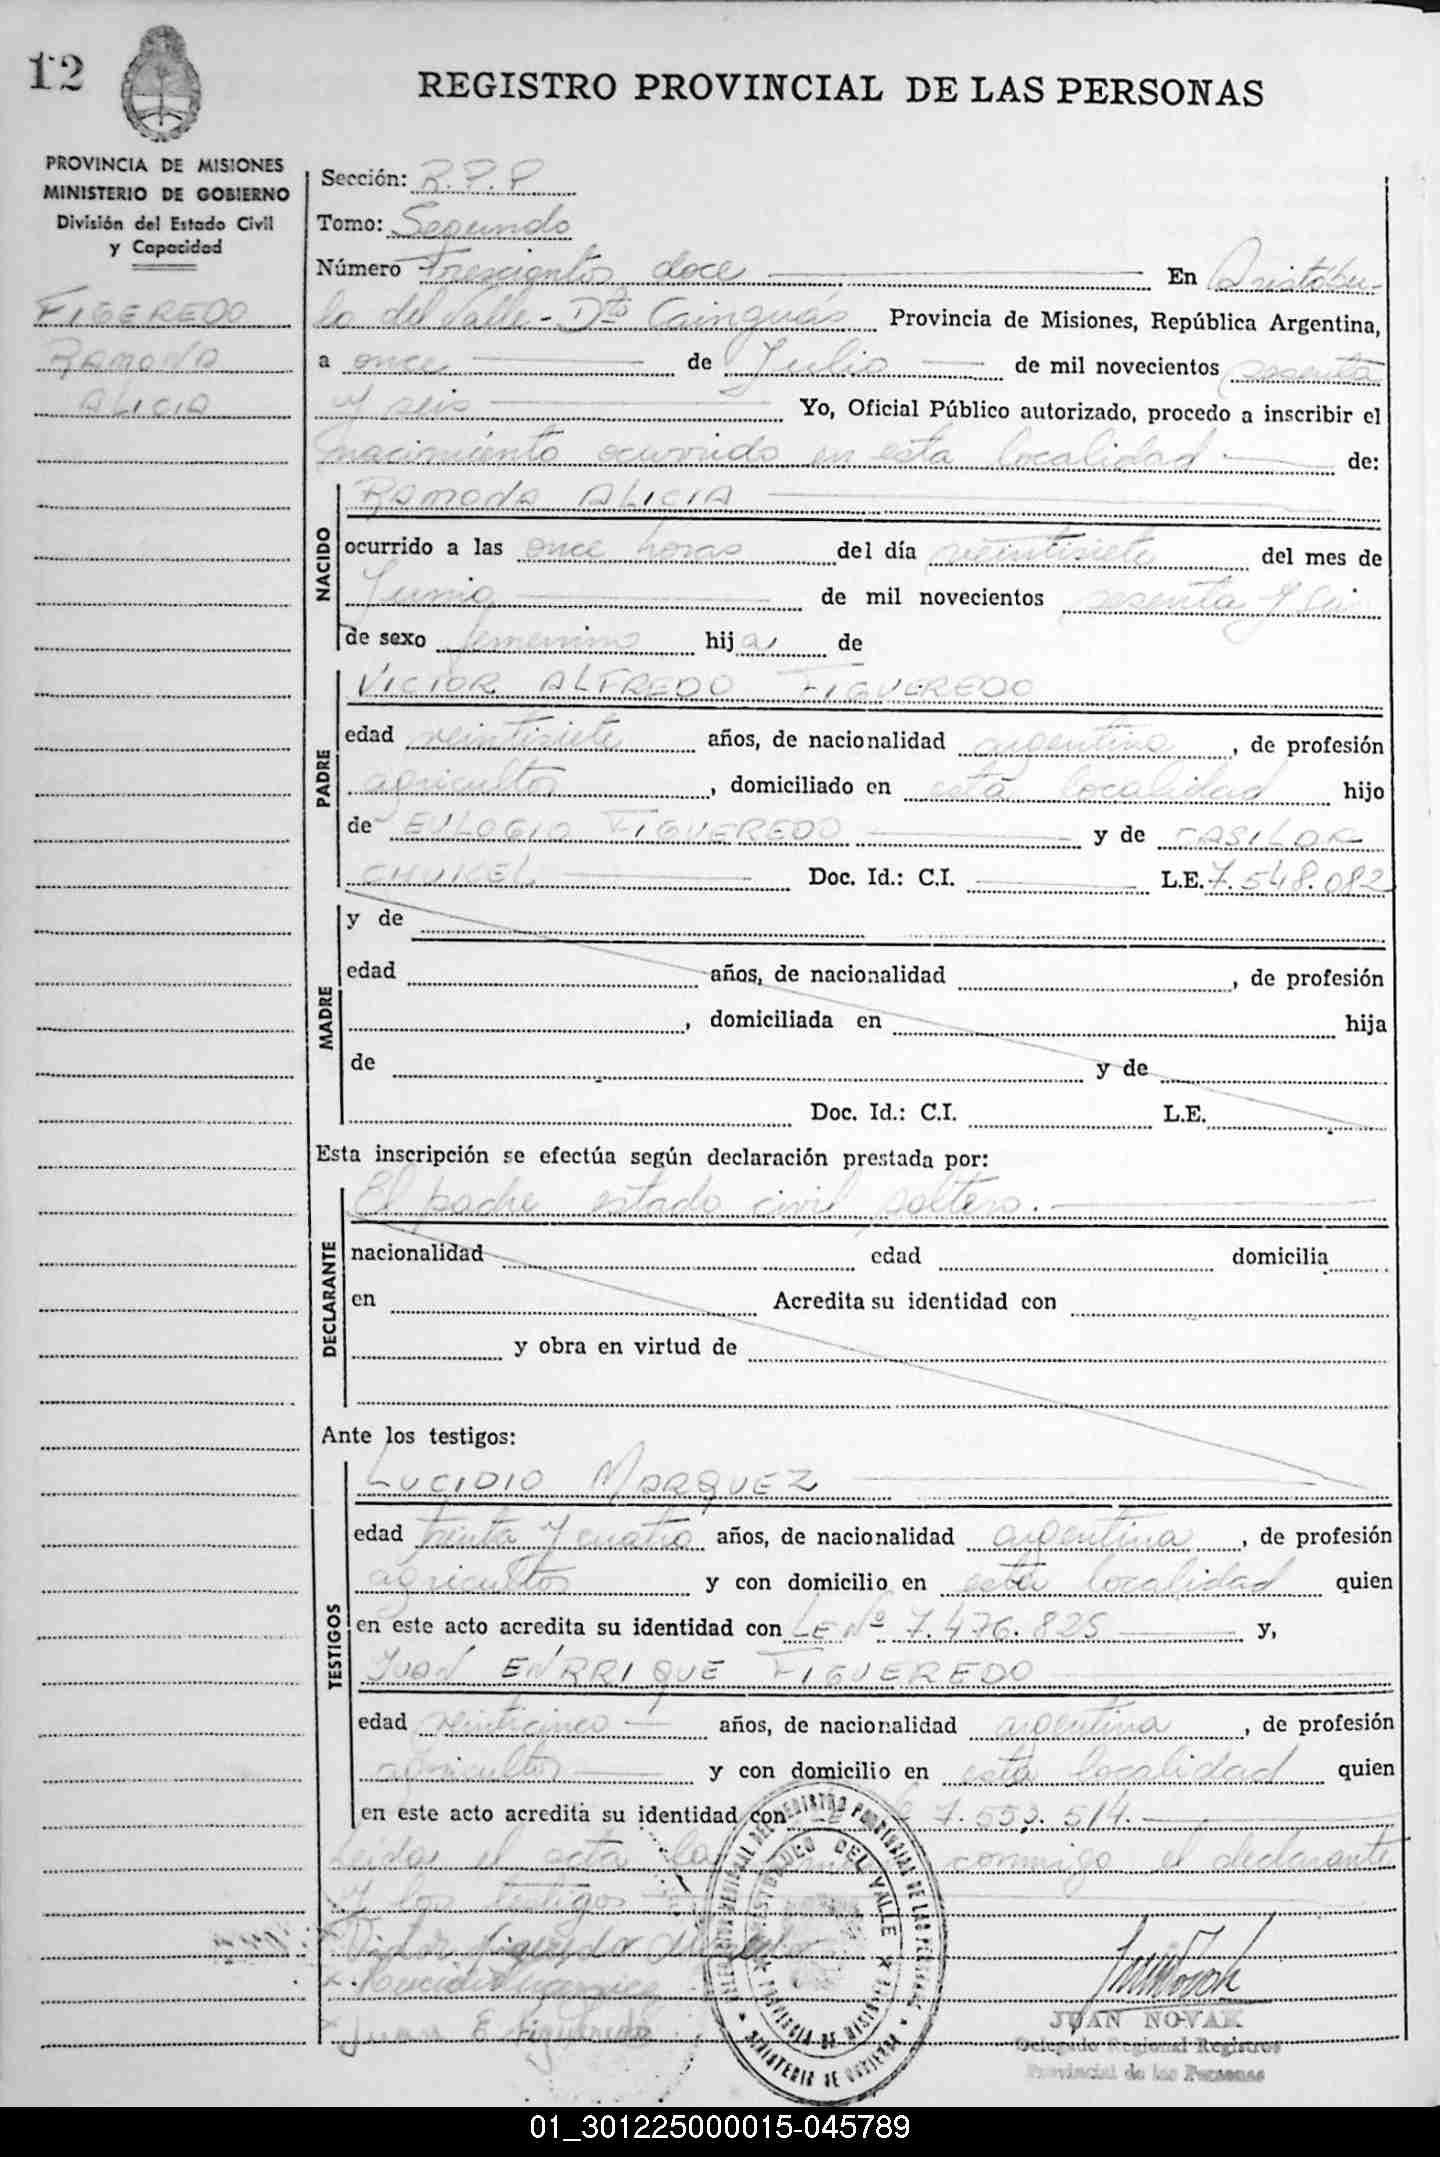 12
REGISTRO PROVINCIAL DE LAS PERSONAS
PROVINCIA DE MISIONES
MINISTERIO DE GOBIERNO
División del Estado Civil
y Capacidad
FIGEREDO
RAMONA
ALICIA
Sección: R.P.P
Tomo: Segundo
Número Trescientos doce En Aristóbu-
lo del Valle - Dto Cainguás Provincia de Misiones, República Argentina,
a once de Julio de mil novecientos sesenta
y seis Yo, Oficial Público autorizado, procedo a inscribir el
nacimiento ocurrido en esta localidad de:
NACIDO
RAMONA ALICIA
ocurrido a las once horas del día veintisiete del mes de
Junio de mil novecientos sesenta y seis
de sexo femenino hija de
PADRE
VICTOR ALFREDO FIGUEREDO
edad veintisiete años, de nacionalidad argentina, de profesión
agricultor, domiciliado en esta localidad hijo
de EULOGIO FIGUEREDO y de CASILDA
Doc. Id.: C.I. L.E. 7.548.082
MADRE
y de
edad años, de nacionalidad , de profesión
, domiciliada en hija
de y de
Doc. Id.: C.I. L.E.
Esta inscripción se efectúa según declaración prestada por:
DECLARANTE
El padre estado civil soltero.
nacionalidad edad domicilia
en Acredita su identidad con
y obra en virtud de
Ante los testigos:
TESTIGOS
LUCIDIO MARQUEZ
edad treinta y cuatro años, de nacionalidad argentina, de profesión
agricultor y con domicilio en esta localidad quien
en este acto acredita su identidad con LE Nº 7.476.825 y,
JUAN ENRRIQUE FIGUEREDO
edad veinticinco años, de nacionalidad argentina, de profesión
agricultor y con domicilio en esta localidad quien
en este acto acredita su identidad con 7.553.514.
Leida el acta la conmigo el declarante
y los testigos
Victor
Juan E Figueredo
ARISTOBULO DEL VALLE
PROVINCIA DE MISIONES
MINISTERIO DE GOBIERNO
JUAN NOVAK
Delegado Regional Registros
Provincial de las Personas
01_301225000015-045789